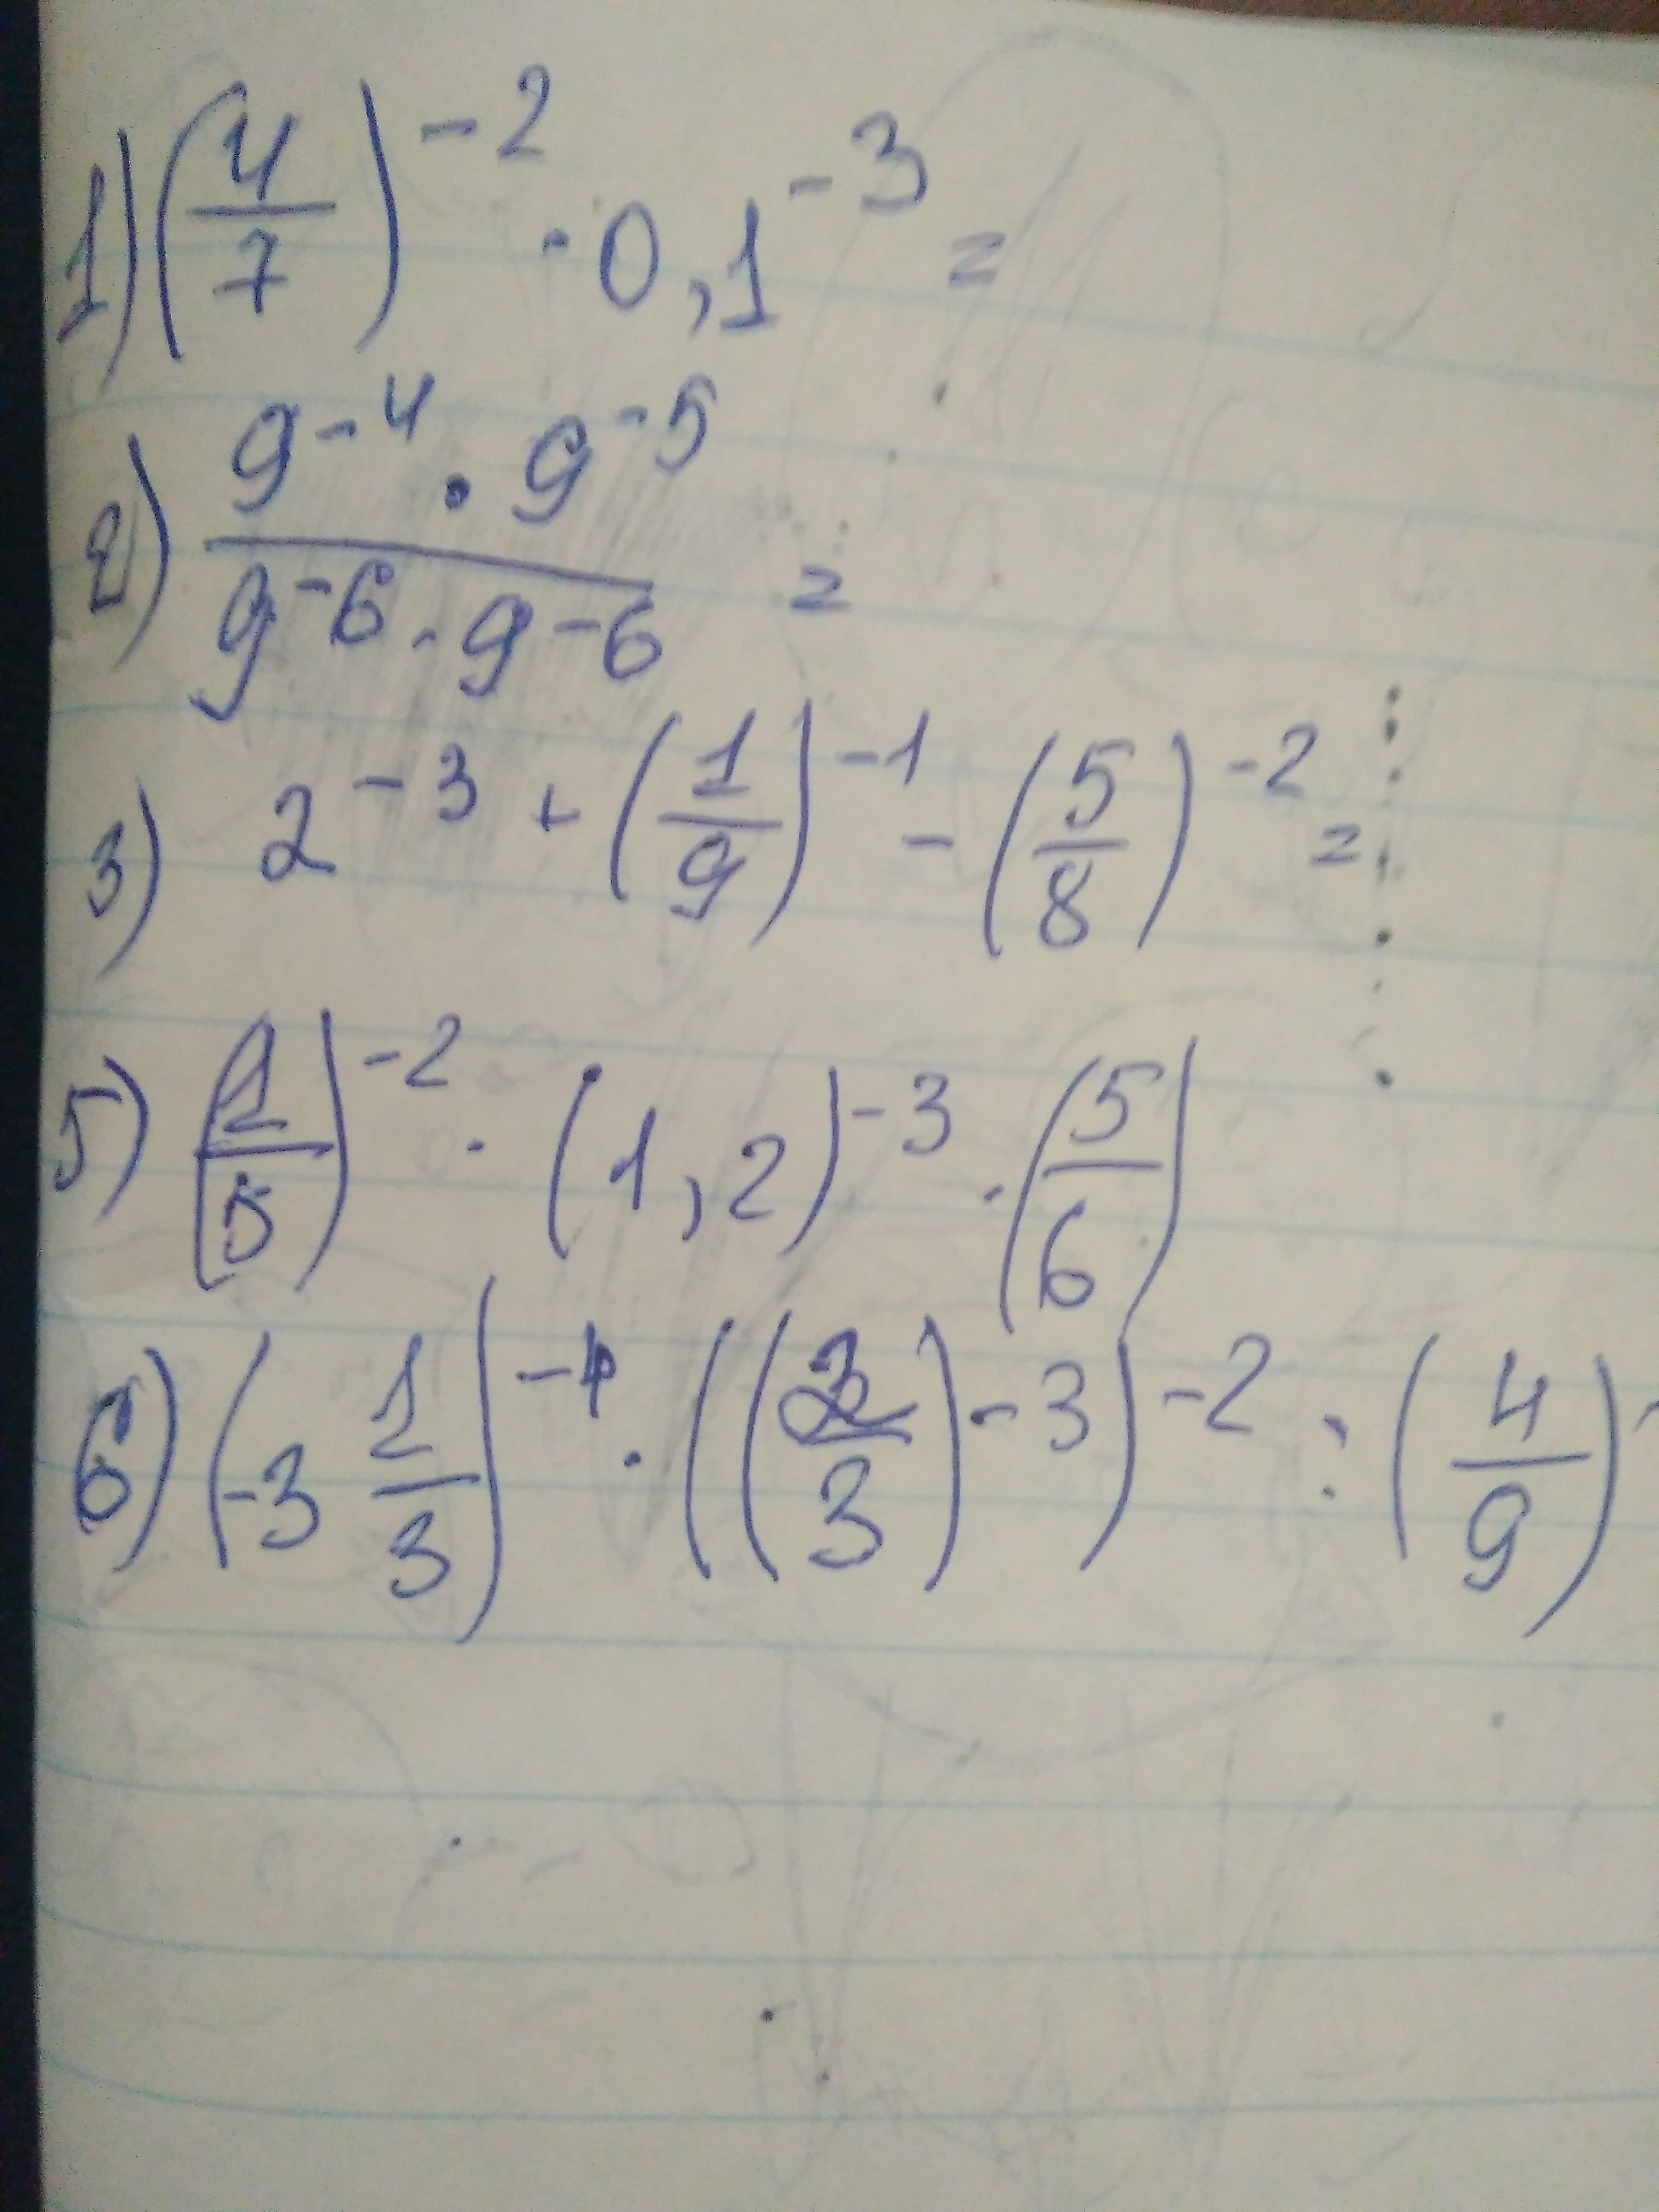 1) (4/7)^-2 · 0,1^-3 =
2) (9^-4 · 9^-5)/(9^-6 · 9^-6) =
3) 2^-3 + (1/9)^-1 - (5/8)^-2 =
5) (2/5)^-2 · (1,2)^-3 · (5/6)
6) (-3 1/3)^-4 · ((2/3)^-3)^-2 : (4/9)^-